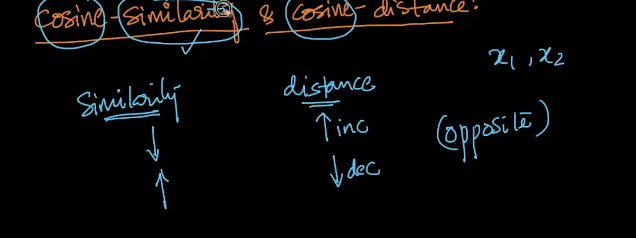 cosine-similarity & cosine-distance:
x1, x2
Similarity distance
↓ ↑ inc (opposite)
↑ ↓ dec